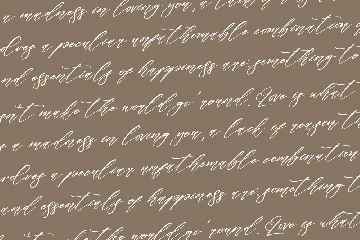 a madness in loving you, a lack of r
olves a peculiar unfathomable combination
and essentials of happiness are:something to
sn't make the world go 'round. Love is what
s a madness in loving you, a lack of reason t
volves a peculiar unfathomable combination
and essentials of happiness are:something t
the world go 'round. Love is what